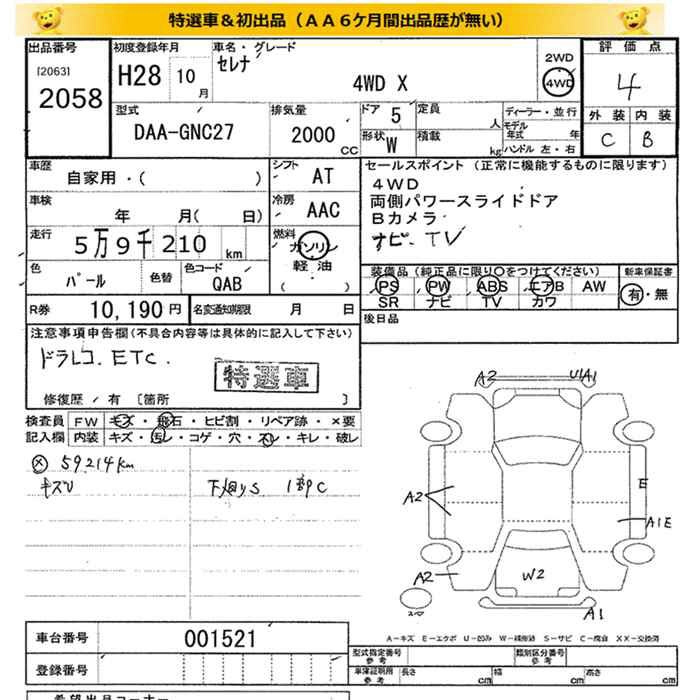 特選車＆初出品（ＡＡ６ケ月間出品歴が無い）
出品番号 初度登録年月 車名・グレード 評価点
[2063] セレナ 2WD
2058 H28 10月 4WD X 4WD 4
型式 排気量 ドア 5 定員 人 ディーラー・並行 外装 内装
DAA-GNC27 2000 CC 形状 W 積載 kg モデル年式 年 C B
ハンドル 左・右
車歴 シフト セールスポイント（正常に機能するものに限ります）
自家用・（ ） AT 4WD
車検 冷房 両側パワースライドドア
年 月（ 日） AAC Bカメラ
走行 燃料 ナビ、TV
5万9千210 km ガソリン
軽油
（ ）
色 色替 色コード 装備品（純正品に限り○をつけてください） 新車保証書
パール QAB PS PW ABS エアB AW 有・無
SR ナビ TV カワ
R券 10,190円 名変通知期限 月 日 後日品
注意事項申告欄（不具合内容等は具体的に記入して下さい）
ドラレコ、ETC.
特選車
修復歴／有 〔箇所 〕
検査員 FW キズ・飛石・ヒビ割・リペア跡・×要
記入欄 内装 キズ・汚レ・コゲ・穴・スレ・キレ・破レ
59214km
キズU 下廻りS 1部C
A2 U1A1
A2 E
A1E
A2 W2
A1
A－キズ E－エクボ U－凹み W－補修跡 S－サビ C－腐食 XX－交換済
車台番号 001521
型式指定番号 参考 類別区分番号 参考
登録番号 車庫証明用 参考 長さ cm 幅 cm 高さ cm
希望出品コーナー